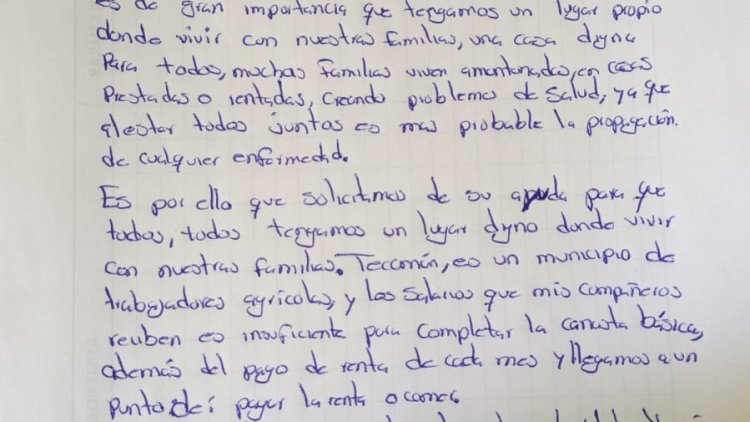 es de gran importancia que tengamos un lugar propio
donde vivir con nuestras familias, una casa digna
Para todos, muchas familias viven amontonadas, en casas
Prestadas o rentadas, creando problemas de Salud, ya que
al estar todos juntos es mas probable la propagación.
de cualquier enfermedad.
Es por ello que solicitamos de su ayuda para que
todas, todos tengamos un lugar digno donde vivir
con nuestras familias. Tecomán, es un municipio de
trabajadores agrícolas, y los Salarios que mis compañeros
reciben es insuficiente para completar la canasta básica,
además del pago de renta de cada mes y llegamos a un
punto de: pagar la renta o comer.